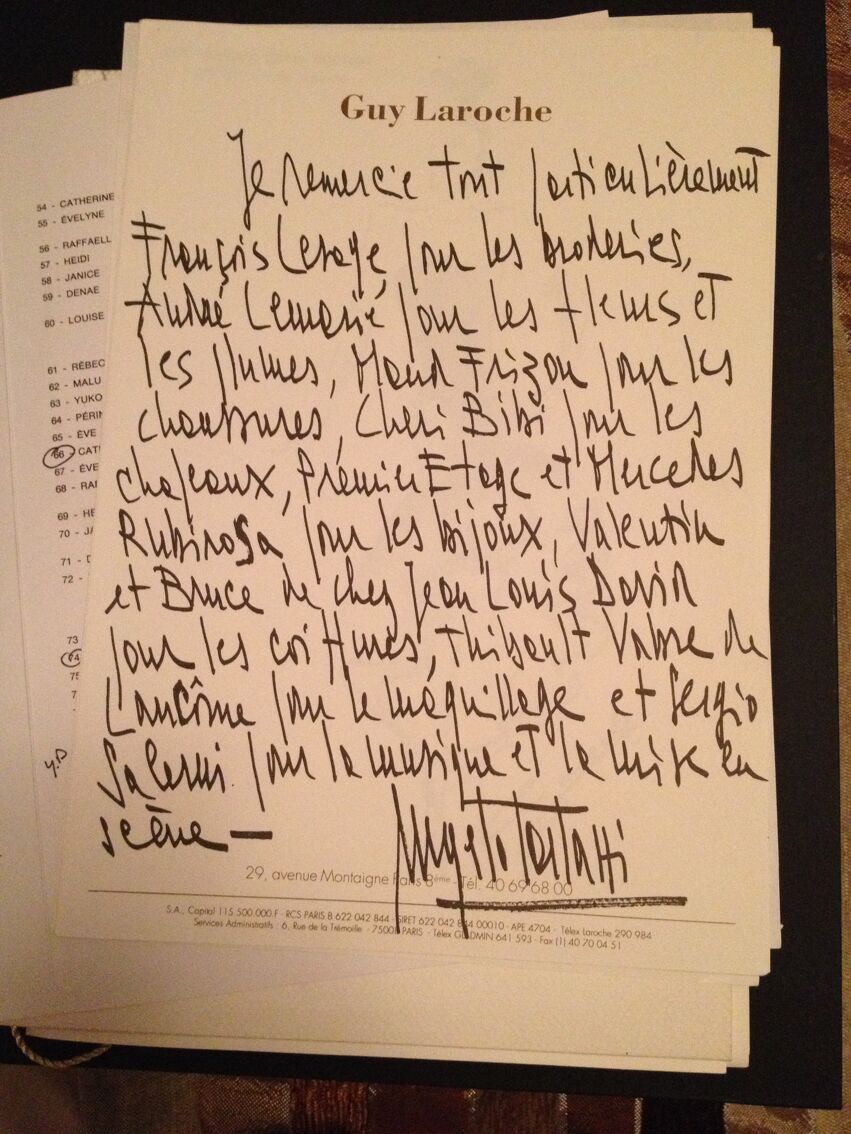 Guy Laroche
Je remercie tout particulièrement
François Lesage, pour les broderies,
André Lemarié pour les fleurs et
les plumes, Maud Frizon pour les
chaussures, Cheri Bibi pour les
chapeaux, Premier Etage et Mercedes
Rubirosa pour les bijoux, Valentin
et Bruce de chez Jean Louis David
pour les coiffures, Thibault Vabre de
Lancôme pour le maquillage et Sergio
Salerni pour la musique et la mise en
scène —
29, avenue Montaigne Paris 8ème - Tél. 40 69 68 00
S.A., Capital 115 500 000 F - RCS PARIS B 622 042 844 - SIRET 622 042 844 00010 - APE 4704 - Télex Laroche 290 984
Services Administratifs : 6, Rue de la Trémoille - 75008 PARIS - Télex GLADMIN 641 593 - Fax (1) 40 70 04 51
54 - CATHERINE
55 - ÉVELYNE
56 - RAFFAELL
57 - HEIDI
58 - JANICE
59 - DENAE
60 - LOUISE
61 - RÉBEC
62 - MALU
63 - YUKO
64 - PÉRI
65 - ÈVE
66 - CATH
67 - ÉVE
68 - RA
69 - HE
70 - J
71 -
72 -
73
74